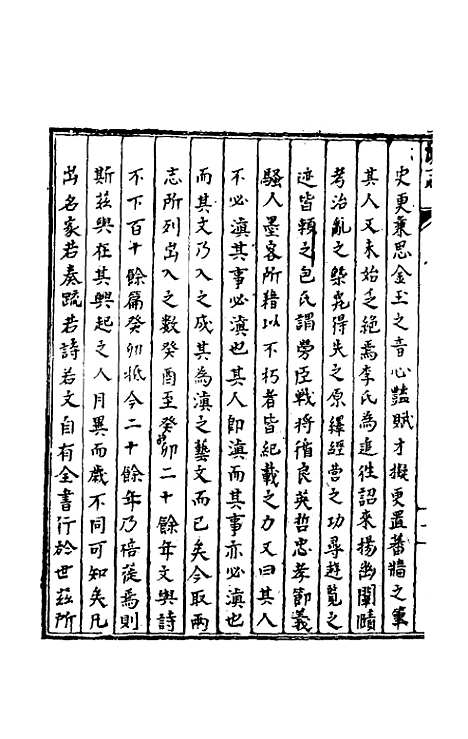 史更兼思金玉之音心豔賦才擬更置蕃牆之筆
其人又未始乏絕焉李氏為追徃詔來揚幽闡賾
考治亂之槩究得失之原繹經營之功尋遊覽之
迹皆賴之包氏謂勞臣戰將循良英哲忠孝節義
騷人墨客所藉以不朽者皆紀載之力又曰其人
不必滇其事必滇也其人即滇而其事亦必滇也
而其文乃入之成其為滇之藝文而已矣今取兩
志所列出入之數癸酉至癸卯二十餘年文與詩
不下百十餘篇癸卯抵今二十餘年乃倍蓰焉則
斯莊與在其興起之人月異而歲不同可知矣凡
出名家若奏疏若詩若文自有全書行於世茲所